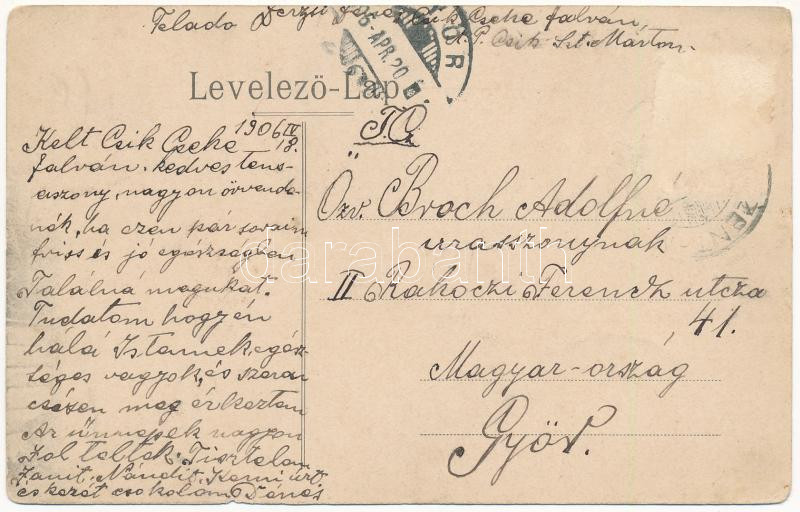 Felado Derzsi Dénes Csik Csekefalván,
u. P. Csik Szt. Márton.
GYŐR
APR. 20
Levelező-Lap.
Kelt Csik Cseke 1906 IV 18.
falván. kedves tens-
aszony, nagyon örvende-
nék, ha ezen pár soraim
friss és jó egészségben
Találná magukat.
Tudatom hogy én
hálá Istennek, egész-
séges vagyok, és szeren
csésen meg érkeztem
Az ünnepek nagyon
Jol teltek. Tisztelem
Fanit. Nándit.
és kezét csokolom Dénes
TC.
Özv. Broch Adolfné
urasszonynak
II Rakoczi Ferencz utcza
41.
Magyar-ország
Györ.
SZENT
darabanth